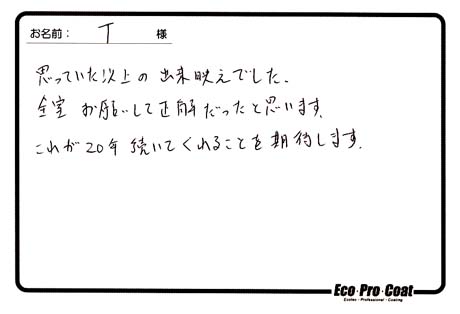 お名前： T 様
思っていた以上の出来映えでした。
全室 お願いして正解だったと思います。
これが20年続いてくれることを期待します。
Eco・Pro・Coat
Ecotex・Professional・Coating